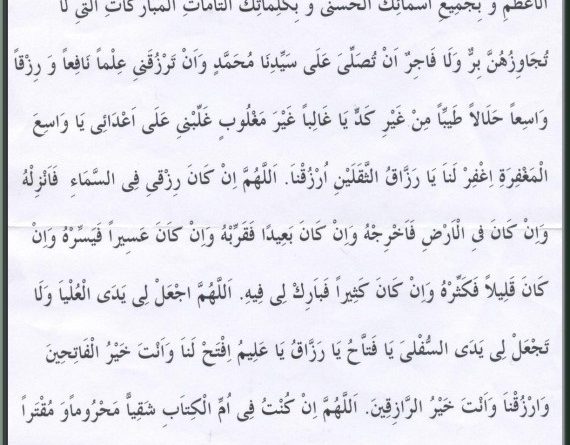 الْاَعْظَمِ وَ بِجَمِيعِ اَسْمَائِكَ الْحُسْنَى وَ بِكَلِمَاتِكَ التَّامَّاتِ الْمُبَارَكَاتِ الَّتِى لَا
تُجَاوِزُهُنَّ بِرٌّ وَلَا فَاجِرٌ اَنْ تُصَلِّىَ عَلَى سَيِّدِنَا مُحَمَّدٍ وَاَنْ تَرْزُقَنِى عِلْماً نَافِعاً وَ رِزْقاً
وَاسِعاً حَلَالاً طَيِّباً مِنْ غَيْرِ كَدٍّ يَا غَالِباً غَيْرَ مَغْلُوبٍ غَلِّبْنِى عَلَى اَعْدَائِى يَا وَاسِعَ
الْمَغْفِرَةِ اِغْفِرْ لَنَا يَا رَزَّاقُ الثَّقَلَيْنِ اُرْزُقْنَا. اَللَّهُمَّ اِنْ كَانَ رِزْقِى فِى السَّمَاءِ فَاَنْزِلْهُ
وَاِنْ كَانَ فِى الْاَرْضِ فَاَخْرِجْهُ وَاِنْ كَانَ بَعِيدًا فَقَرِّبْهُ وَاِنْ كَانَ عَسِيراً فَيَسِّرْهُ وَاِنْ
كَانَ قَلِيلاً فَكَثِّرْهُ وَاِنْ كَانَ كَثِيراً فَبَارِكْ لِى فِيهِ. اَللَّهُمَّ اجْعَلْ لِى يَدَى الْعُلْيَا وَلَا
تَجْعَلْ لِى يَدَى السُّفْلَىَ يَا فَتَّاحُ يَا رَزَّاقُ يَا عَلِيمُ اِفْتَحْ لَنَا وَاَنْتَ خَيْرُ الْفَاتِحِينَ
وَارْزُقْنَا وَاَنْتَ خَيْرُ الرَّازِقِينَ. اَللَّهُمَّ اِنْ كُنْتُ فِى اُمِّ الْكِتَابِ شَقِياًّ مَحْرُوماً وَ مُقْتَراً